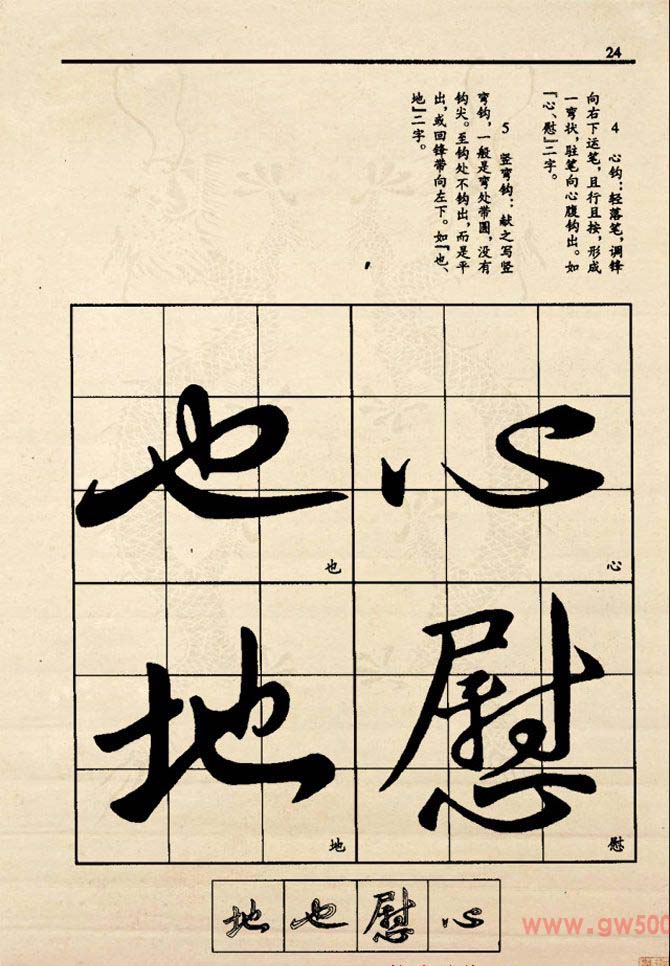 24
4 心钩：轻落笔，调锋
向右下运笔，且行且按，形成
一弯状，驻笔向心腹钩出。如
『心、慰』二字。
5 竖弯钩：献之写竖
弯钩，一般是弯处带圆，没有
钩尖。至钩处不钩出，而是平
出，或回锋带向左下。如『也、
地』二字。
心
心
慰
慰
也
也
地
地
地也慰心
www.gw500